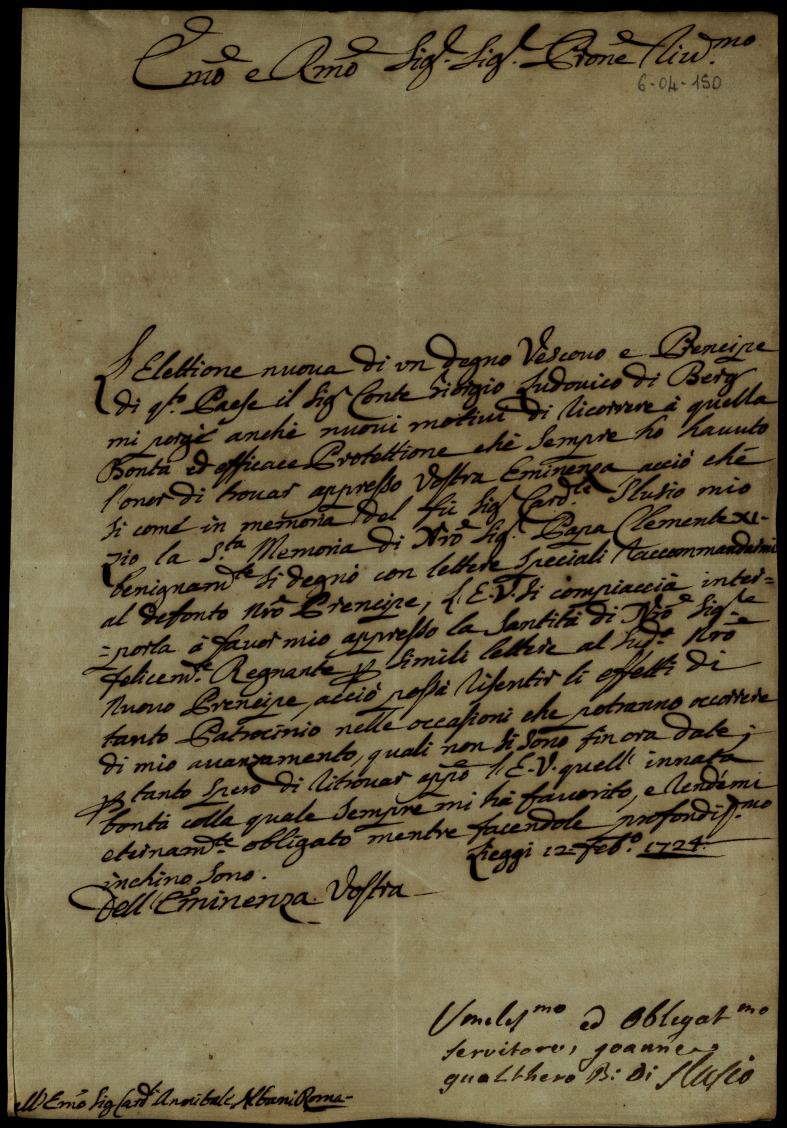 Emo e Rmo Sigr. Sigr. Prone Riv.mo
6-04-150
L'Elettione nuova di un degno Vescovo e Prencipe
di qto. Paese il Sigr Conte Giorgio Ludovico di Berg
mi porge anche nuovi motivi di ricorrere à quella
Bontà ed efficace Protettione che sempre ho havuto
l'onor di trovar appresso Vostra Eminenza acciò che
si come in memoria del fù Sigr Card.le Slusio mio
zio la S.ta Memoria di Nro Sigr. Papa Clemente XI.
benignam.te si degnò con lettere speciali raccommandarmi
al defonto Nrõ Prencipe, L'E.V. si compiaccia inter=
=porla à favor mio appresso la Santità di Nrõ Sig.re
felicem.te Regnante p simili lettere al Sud.to Nrõ
Nuovo Prencipe, acciò possa risentir li effetti di
tanto Patrocinio nelle occasioni che potranno occorrere
di mio avanzamento, quali non si sono fin ora date;
p tanto spero di ritrovar appo l'E.V. quell' innata
bontà colla quale sempre mi hà favorito, e rendemi
eternam.te obligato mentre facendole profondiss.mo
inchino sono.
Lieggi 12 Feb.o 1724.
Dell' Eminenza Vostra
Vmiless.mo ed Obligat.mo
servitore, Joanne
gualthero B: di Slusio
all' Emo Sig Card. Annibale Albani Roma